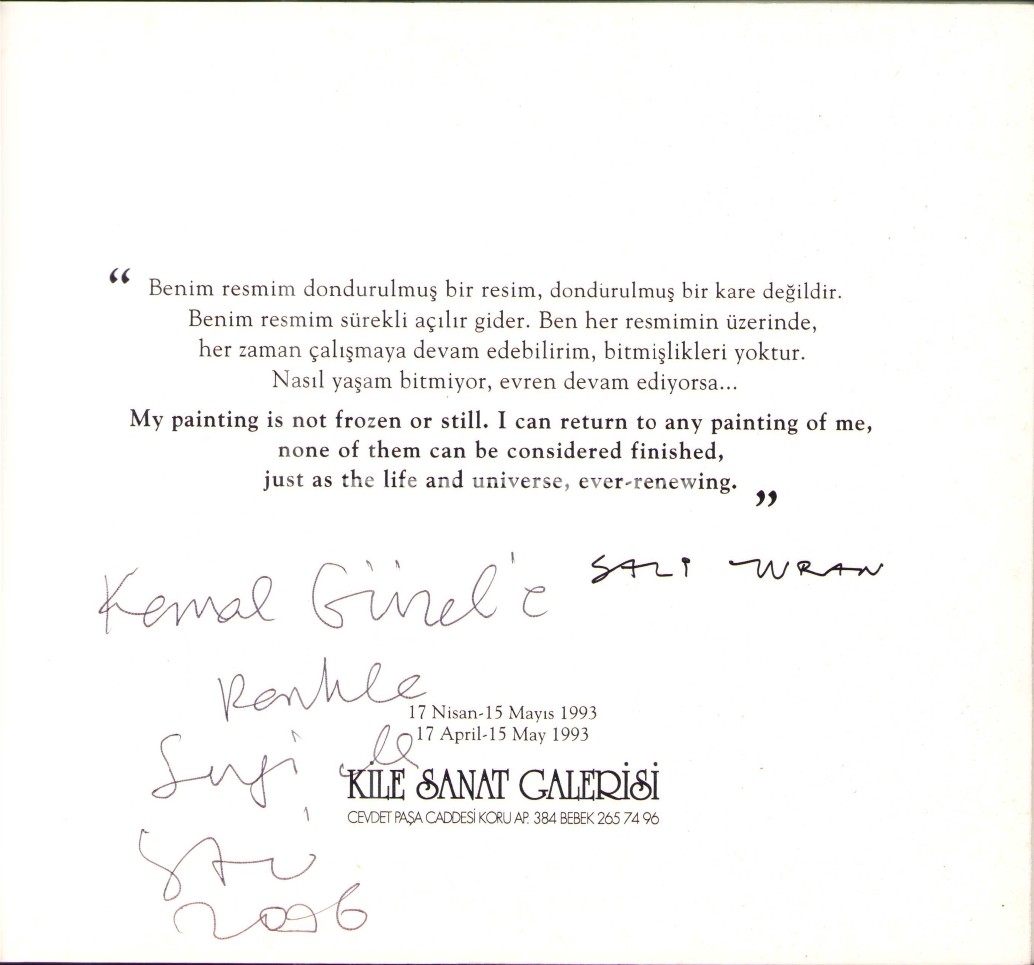 “ Benim resmim dondurulmuş bir resim, dondurulmuş bir kare değildir.
Benim resmim sürekli açılır gider. Ben her resmimin üzerinde,
her zaman çalışmaya devam edebilirim, bitmişlikleri yoktur.
Nasıl yaşam bitmiyor, evren devam ediyorsa...
My painting is not frozen or still. I can return to any painting of me,
none of them can be considered finished,
just as the life and universe, ever-renewing. ”
SALİ TURAN
Kemal Güzel'e
Renkle
Sevgi ile
17 Nisan-15 Mayıs 1993
17 April-15 May 1993
KİLE SANAT GALERİSİ
CEVDET PAŞA CADDESİ KORU AP. 384 BEBEK 265 74 96
2006